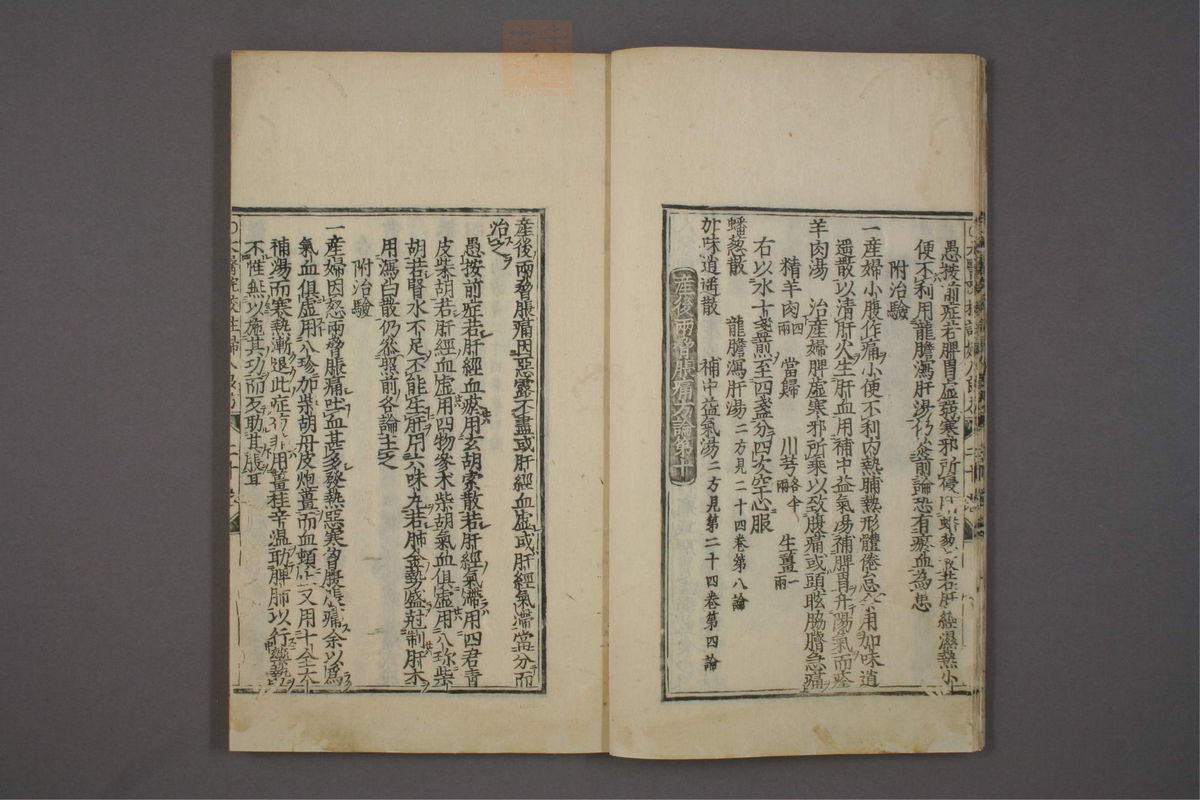 愚按前症若脾胃虚弱寒邪所侵用蟠葱散若肝經濕熱小
便不利用龍膽瀉肝湯仍參前論恐有瘀血為患
附治驗
一產婦小腹作痛小便不利内熱晡熱形體倦怠用加味逍
遥散以清肝火生肝血用補中益氣湯補脾胃升陽氣而痊
羊肉湯 治產婦脾虚寒邪所乘以致腹痛或頭眩脇臍急痛
精羊肉四兩 當歸 川芎各半兩 生薑一兩
右以水十盞煎至四盞分四次空心服
蟠葱散 龍膽瀉肝湯二方見二十四卷第八論
加味逍遥散 補中益氣湯二方見第二十四卷第四論
產後兩脅脹痛方論第十
產後兩脅脹痛因惡露不盡或肝經血虚或肝經氣滯當分而
治スヲ之
愚按前症若肝經血瘀用玄胡索散若肝經氣滯用四君青
皮柴胡若肝經血虚用四物參术柴胡氣血俱虚用八珍柴
胡若腎水不足不能生肝用六味丸若肺金勢盛尅制肝木
用瀉白散仍參照前各論主之
附治驗
一產婦因怒兩脅脹痛吐血甚多發熱惡寒胷腹脹痛余以爲
氣血俱虚用八珍加柴胡丹皮炮薑而血頓止又用十全大
補湯而寒熱漸退此症用薑桂辛温助脾肺以行藥勢
不惟無以施其功而反助其脹耳